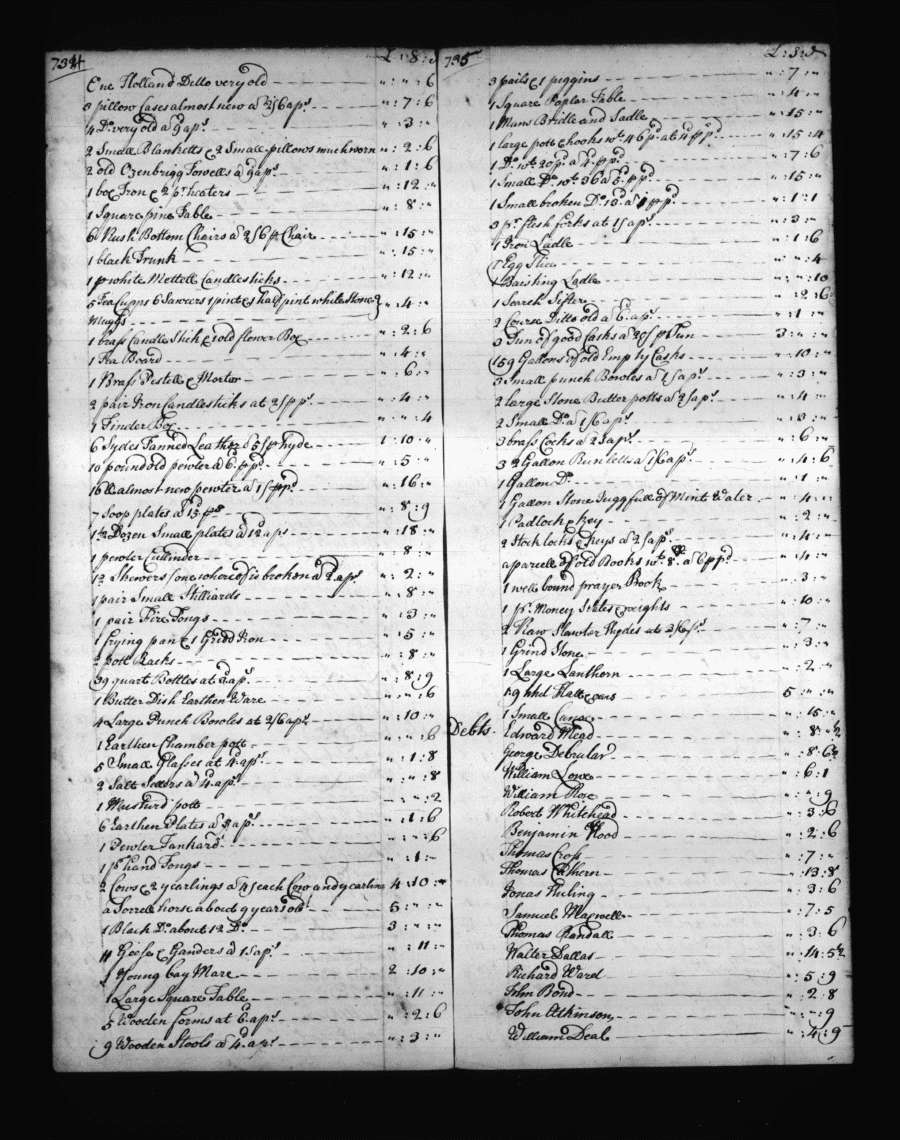 734
L : S : D
One Holland Ditto very old " : " : 6
3 pillow Cases almost new a 2/6 aps " : 7 : 6
4 Do very old a 9 aps " : 3 : "
2 Small Blanketts & 2 Small pillows much worn " : 2 : 6
2 old Ozenbrigg Towells a 9 aps " : 1 : 6
1 box Iron & 2 pr heaters " : 12 : "
1 Square pine Table " : 8 : "
6 Rush Bottom Chairs a 2/6 p Chair " : 15 : "
1 black Trunk " : 15 : "
1 p white Mettell Candlesticks " : 12 : "
5 Tea Cupps 6 Sawcers 1 pint & half pint white Stone " : 4 : "
Muggs
1 brass Candle Stick & old flower Box " : 2 : 6
1 Tea Board " : 4 : "
1 Brass Pestell & Mortor " : 6 : "
2 pair Iron Candlesticks at 2/ pps " : 4 : "
1 Tinder Box " : " : 4
6 Sydes Tanned Leather a 5/ p hyde 1 : 10 : "
10 pound old pewter a 6 pps " : 5 : "
16 lb almost new pewter a 1/ ppd " : 16 : "
7 Soop plates a 15 ps " : 8 : 9
1 1/2 Dozen Small plates a 12 aps " : 18 : "
1 pewter Cullinder " : 8 : "
12 Skewers (one whereof is broken a 2 aps " : 2 : "
1 pair Small Stilliards " : 8 : "
1 pair Fire Tongs " : 3 : "
1 frying pan & 1 Gridd Iron " : 5 : "
2 pott Racks " : 8 : "
39 quart Bottles at aps " : 8 : 9
1 Butter Dish Earthen Ware " : " : 6
4 Large Punch Bowles at 2/6 aps " : 10 : "
1 Earthen Chamber pott " : " : 6
5 Small Glasses at 4 aps " : 1 : 8
2 Salt Sellers a 4 aps " : " : 8
1 Musturd pott " : " : 2
6 Earthen Plates a 3 aps " : 1 : 6
1 Pewter Tankard " : " : 6
1 pr hand Tongs " : 1 : "
2 Cows & 2 yearlings a 45 each Cow and yearling 4 : 10 : "
a Sorrell horse about 9 years old 5 : " : "
1 Black Do about 12 Do 3 : " : "
11 Geese & Ganders a 1/ aps " : 11 : "
1 Young bay Mare 2 : 10 : "
1 Large Square Table " : 11 : "
5 Wooden forms at 6 aps " : 2 : 6
9 Wooden Stools a 4 aps " : 3 : "
735
L : S : D
3 pails & 1 piggins " : 7 : "
1 Square Poplar Table " : 4 : "
1 Mans Bridle and Sadle " : 15 : "
1 large pott & hooks wt 46 p at 4 ppd " : 15 : 4
1 Do wt 20 p a 4 ppd " : 7 : 6
1 Small Do wt 36 a 5 ppd " : 15 : "
1 Small broken Do 13 a 1 ppd " : 1 : 1
3 pr flesh forks at 1/ aps " : 3 : "
1 Iron Ladle " : 1 : 6
1 Egg Slice " : " : 4
1 Baisting Ladle " : " : 10
1 Search Sifter " : 2 : 6
2 Course Ditto old a 6 aps " : 1 : "
3 Tun of good Casks a 20/ p Tun 3 : " : "
159 Gallons of old Empty Casks " : 10 : "
3 Small punch Bowles a 1/ aps " : 3 : "
2 large Stone Butter potts a 2/ aps " : 4 : "
2 Small Do a 1/6 aps " : 3 : "
3 brass Cocks a 2/ aps " : 6 : "
3 2 Gallon Runletts a 1/6 aps " : 4 : 6
1 Gallon Do " : 1 : "
1 Gallon Stone Jugg full of Mint Water " : 4 : "
1 Padlock & key " : 2 : "
2 Stock locks & keys a 2/ aps " : 4 : "
a parcell of old Books wt 8 a 6 ppd " : 4 : "
1 well bound prayer Book " : 3 : "
1 pr Money Scales & weights " : 10 : "
2 Raw Slawter Hydes at 3/6 ps " : 7 : "
1 Grind Stone " : 3 : "
1 Large Lanthorn " : 2 : "
19 hhd 5 : " : "
1 Small Canoe " : 15 : "
Debts
Edward Mead " : 8 : 1/2
George Debrular " : 8 : 6 1/2
William Lowe " : 6 : 1
William Rose " : " : 9
Robert Whitehead " : 3 : 6
Benjamin Hood " : 2 : 6
Thomas Cross " : 7 : "
Thomas " : 13 : 8
Jonas Huling " : 3 : 6
Samuel Maxwell " : 7 : 5
Thomas Randall " : 3 : 6
Walter Dallas " : 14 : 5 1/2
Richard Ward " : 5 : 9
John Bond " : 2 : 8
John Atkinson " : " : 9
William Deal " : 4 : 9